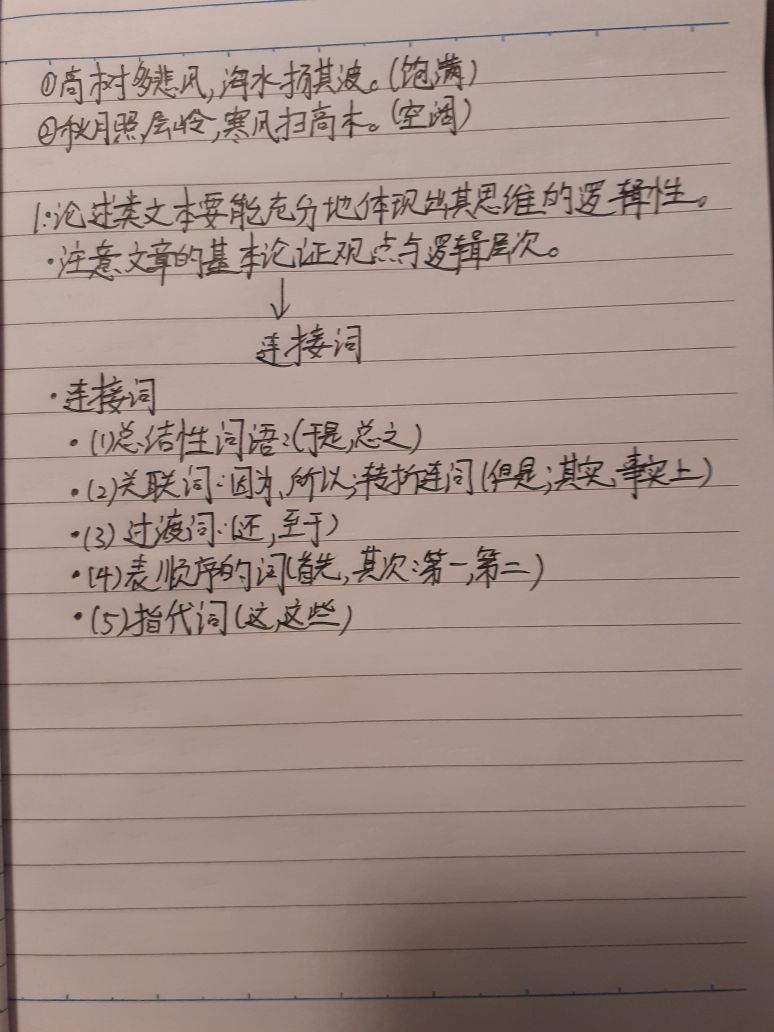 ①高树多悲风,海水扬其波。(饱满)
②秋月照层岭,寒风扫高木。(空阔)
1.论述类文本要能充分地体现出其思维的逻辑性。
·注意文章的基本论证观点与逻辑层次。
↓
连接词
·连接词
·(1)总结性词语:(于是,总之)
·(2)关联词:因为、所以;转折连词(但是;其实、事实上)
·(3)过渡词:(还,至于)
·(4)表顺序的词(首先,其次:第一,第二)
·(5)指代词(这,这些)